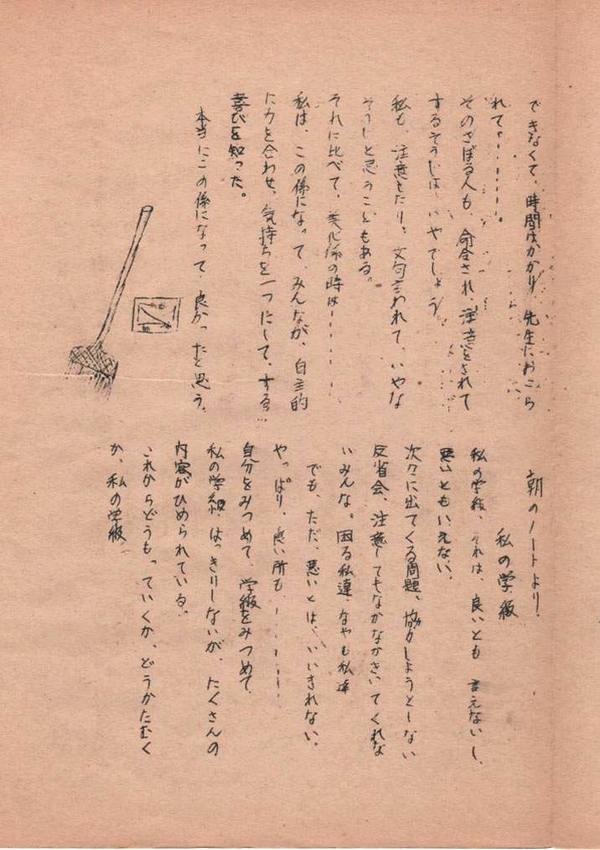 できなくて、時間はかかり、先生におこら
れて、……。
そのさぼる人も、命令され、注意をされて
するそうじは、いやでしょう。
私も、注意をしたり、文句言われて、いやな
そうじと思うこともある。
それに比べて、美化係の時は……
私は、この係になって、みんなが、自主的
に力を合わせ、気持ちを一つにして、する…
喜びを知った。
本当にこの係になって、良かったと思う。
朝のノートより
私の学級
私の学級、それは、良いとも言えないし、
悪いともいえない。
次々に出てくる問題、協力しようとしない
反省会、注意してもなかなかきいてくれな
いみんな。困る私達、なやむ私達
でも、ただ、悪いとは、いいきれない。
やっぱり、良い所も………
自分をみつめて、学級をみつめて
私の学級、はっきりしないが、たくさんの
内容がひめられている。
これからどうもっていくか、どうかたむく
か、私の学級、